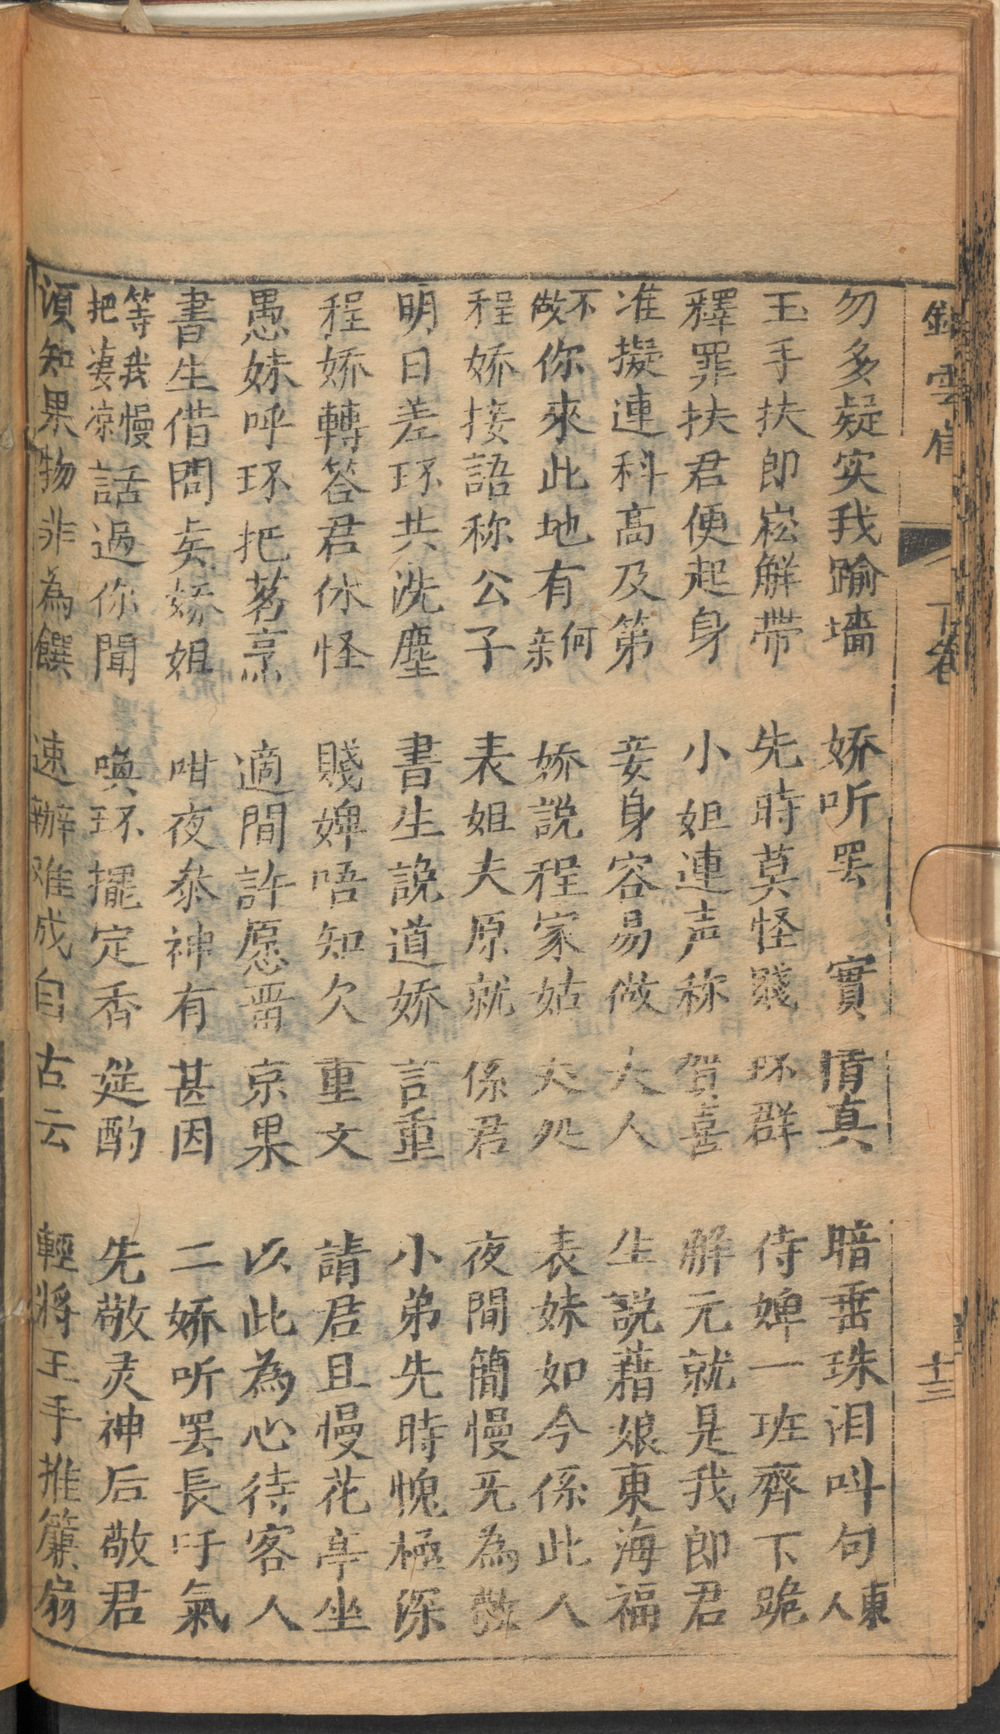 勿多疑实我踰墻　娇听罢　實情真　暗垂珠泪叫句東人
玉手扶郎崧解帶　先時莫怪賤环群　侍婢一班齊下跪
釋罪扶君便起身　小姐連声称賀喜　解元就是我郎君
准擬連科高及第　妾身容易做夫人　生説藉娘東海福
不做你來此地有何親　娇説程家姑丈処　表妹如今係此人
程娇接語称公子　表姐夫原就係君　夜間簡慢旡為敬
明日差环共洗塵　書生說道娇言重　小弟先時愧極深
程娇轉答君休怪　賤婢唔知欠重文　請君且慢花亭坐
愚妹呼环把茗烹　適間許愿畱京果　以此為心待客人
書生借問矣娇姐　咁夜叅神有甚因　二娇听罢長吁氣
等我慢把凄凉話過你聞　喚环擺定香筵酌　先敬灵神后敬君
須知果物非為饌　速辦难成自古云　輕將玉手推簾扇
下卷
十三